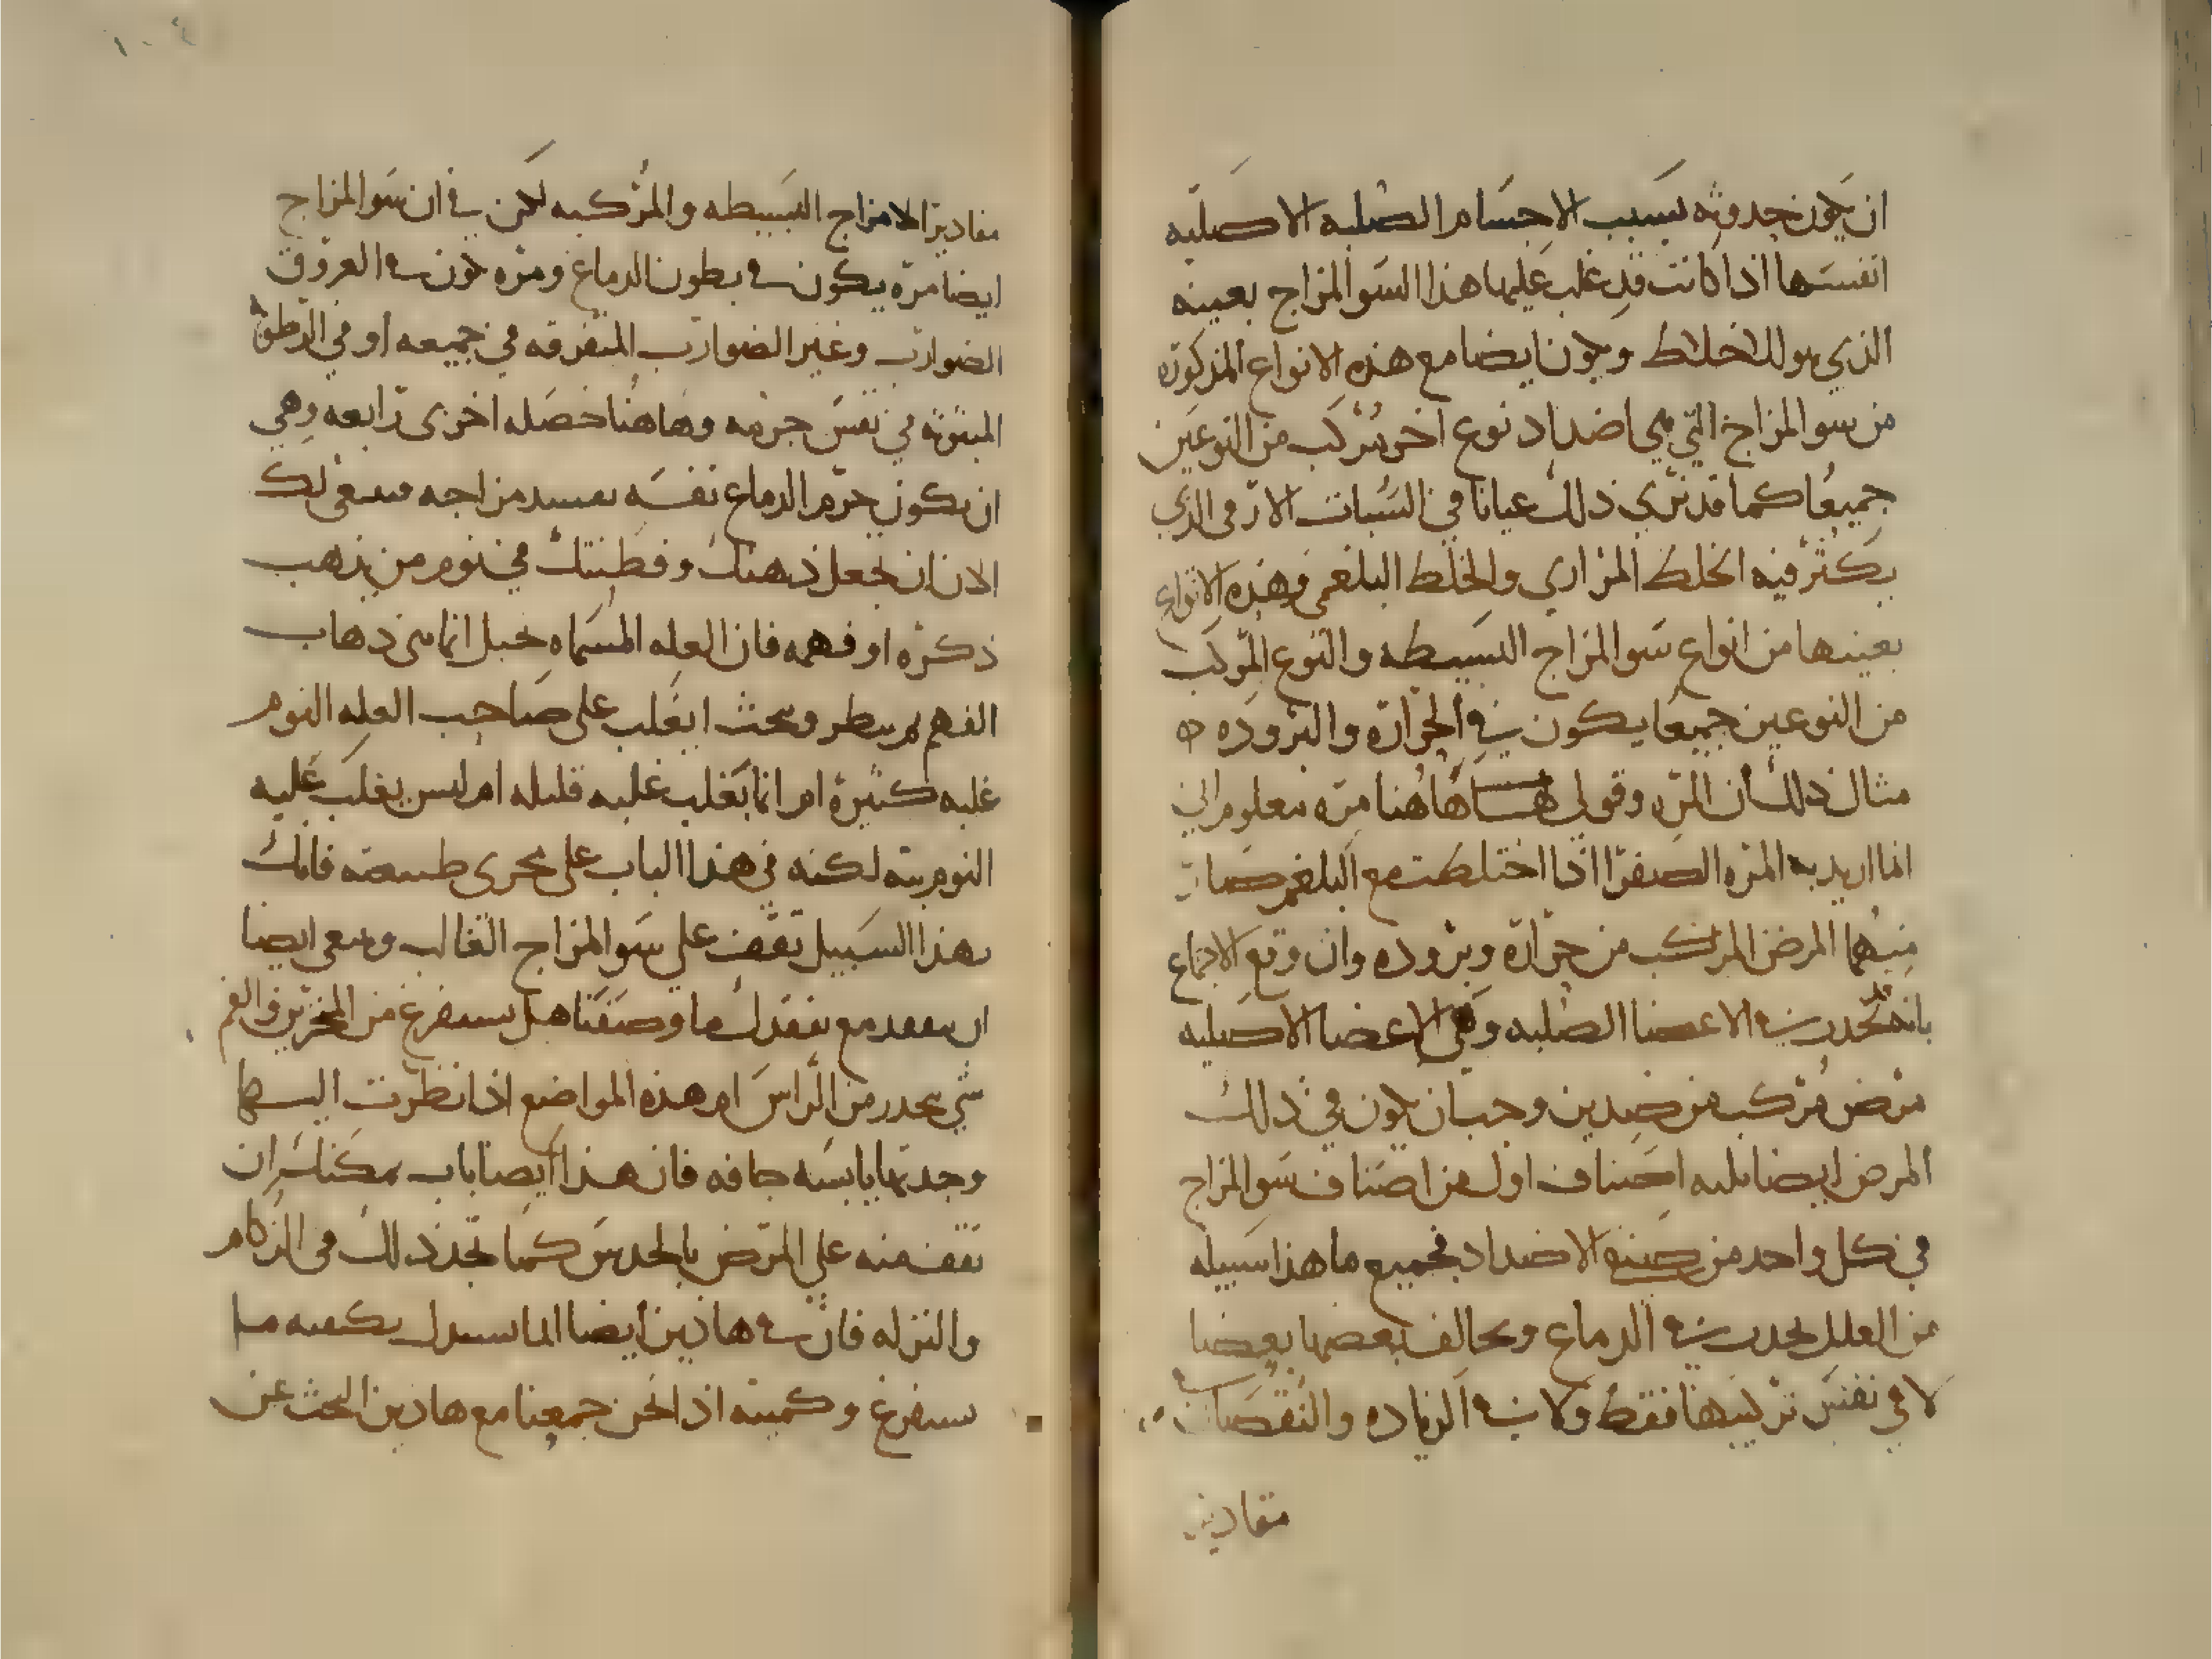 ان يكون حدوثه بسبب الاجسام الصلبه الاصليه
انفسها اذا كانت قد غلب عليها هذا السو المزاج بعينه
الذي هو للاخلاط ويكون ايضا مع هذه الانواع المذكوره
من سو المزاج التي هي اضداد نوع اخر مركب من النوعين
جميعا كما قد نري ذلك عيانا في السبات الارقى الذي
يكثر فيه الخلط المراري والخلط البلغمي وهذه الانواع
بعينها من انواع سو المزاج البسيطه والنوع المركب
من النوعين جميعا يكون في الحراره والبروده ه
مثال ذلك ان المره وقولي هاهنا مره معلوم اني
انما اريد به المره الصفرا اذا اختلطت مع البلغم صار
منهما المرض المركب من حراره وبروده وان وقع الاجماع
بانه يحدث في الاعضا الصلبه وفي الاعضا الاصليه
مرض مركب من ضدين وجب ان يكون في ذلك
المرض ايضا ثلثه اصناف اول من اصناف سو المزاج
في كل واحد من صنفي الاضداد فجميع ما هذا سبيله
من العلل يحدث في الدماغ ويخالف بعضها بعضا
لا في نفس تركيبها فقط ولا في الزياده والنقصان
مقادير
١٠٤
مقادير الامزاج البسيطه والمركبه لكن في ان سو المزاج
ايضا مره يكون في بطون الدماغ ومره يكون في العروق
الضوارب وغير الضوارب المتفرقه في جميعه او في الرطوبه
المبثوثه في نفس جرمه وهاهنا خصله اخرى رابعه وهي
ان يكون جرم الدماغ نفسه يفسد مزاجه فينبغي لك
الان ان تجعل ذهنك وفطنتك في نوم من يذهب
ذكره او فهمه فان العله المسماه خبل انما هي ذهاب
الفهم ثم ينظر ويبحث ايغلب على صاحب العله النوم
غلبه كثيره ام انما يغلب غلبه قليله ام ليس يغلب عليه
النوم بته لكنه في هذا الباب على مجرى طبيعته فانك
بهذا السبيل تقف علي سو المزاج الغالب وينبغي ايضا
ان يتفقد مع تفقدك ما وصفنا هل يستفرغ من المنخرين والفم
شي ينحدر من الراس ام هذه المواضع اذا نظرت اليها
وجدتها يابسه جافه فان هذا ايضا باب يمكننا ان
نقف منه علي المرض بالحدس كما نجد ذلك في الزكام
والنزله فان في هاذين ايضا انما نستدل بكيفيه ما
يستفرغ وكميته اذا نحن جمعنا مع هاذين البحث عن